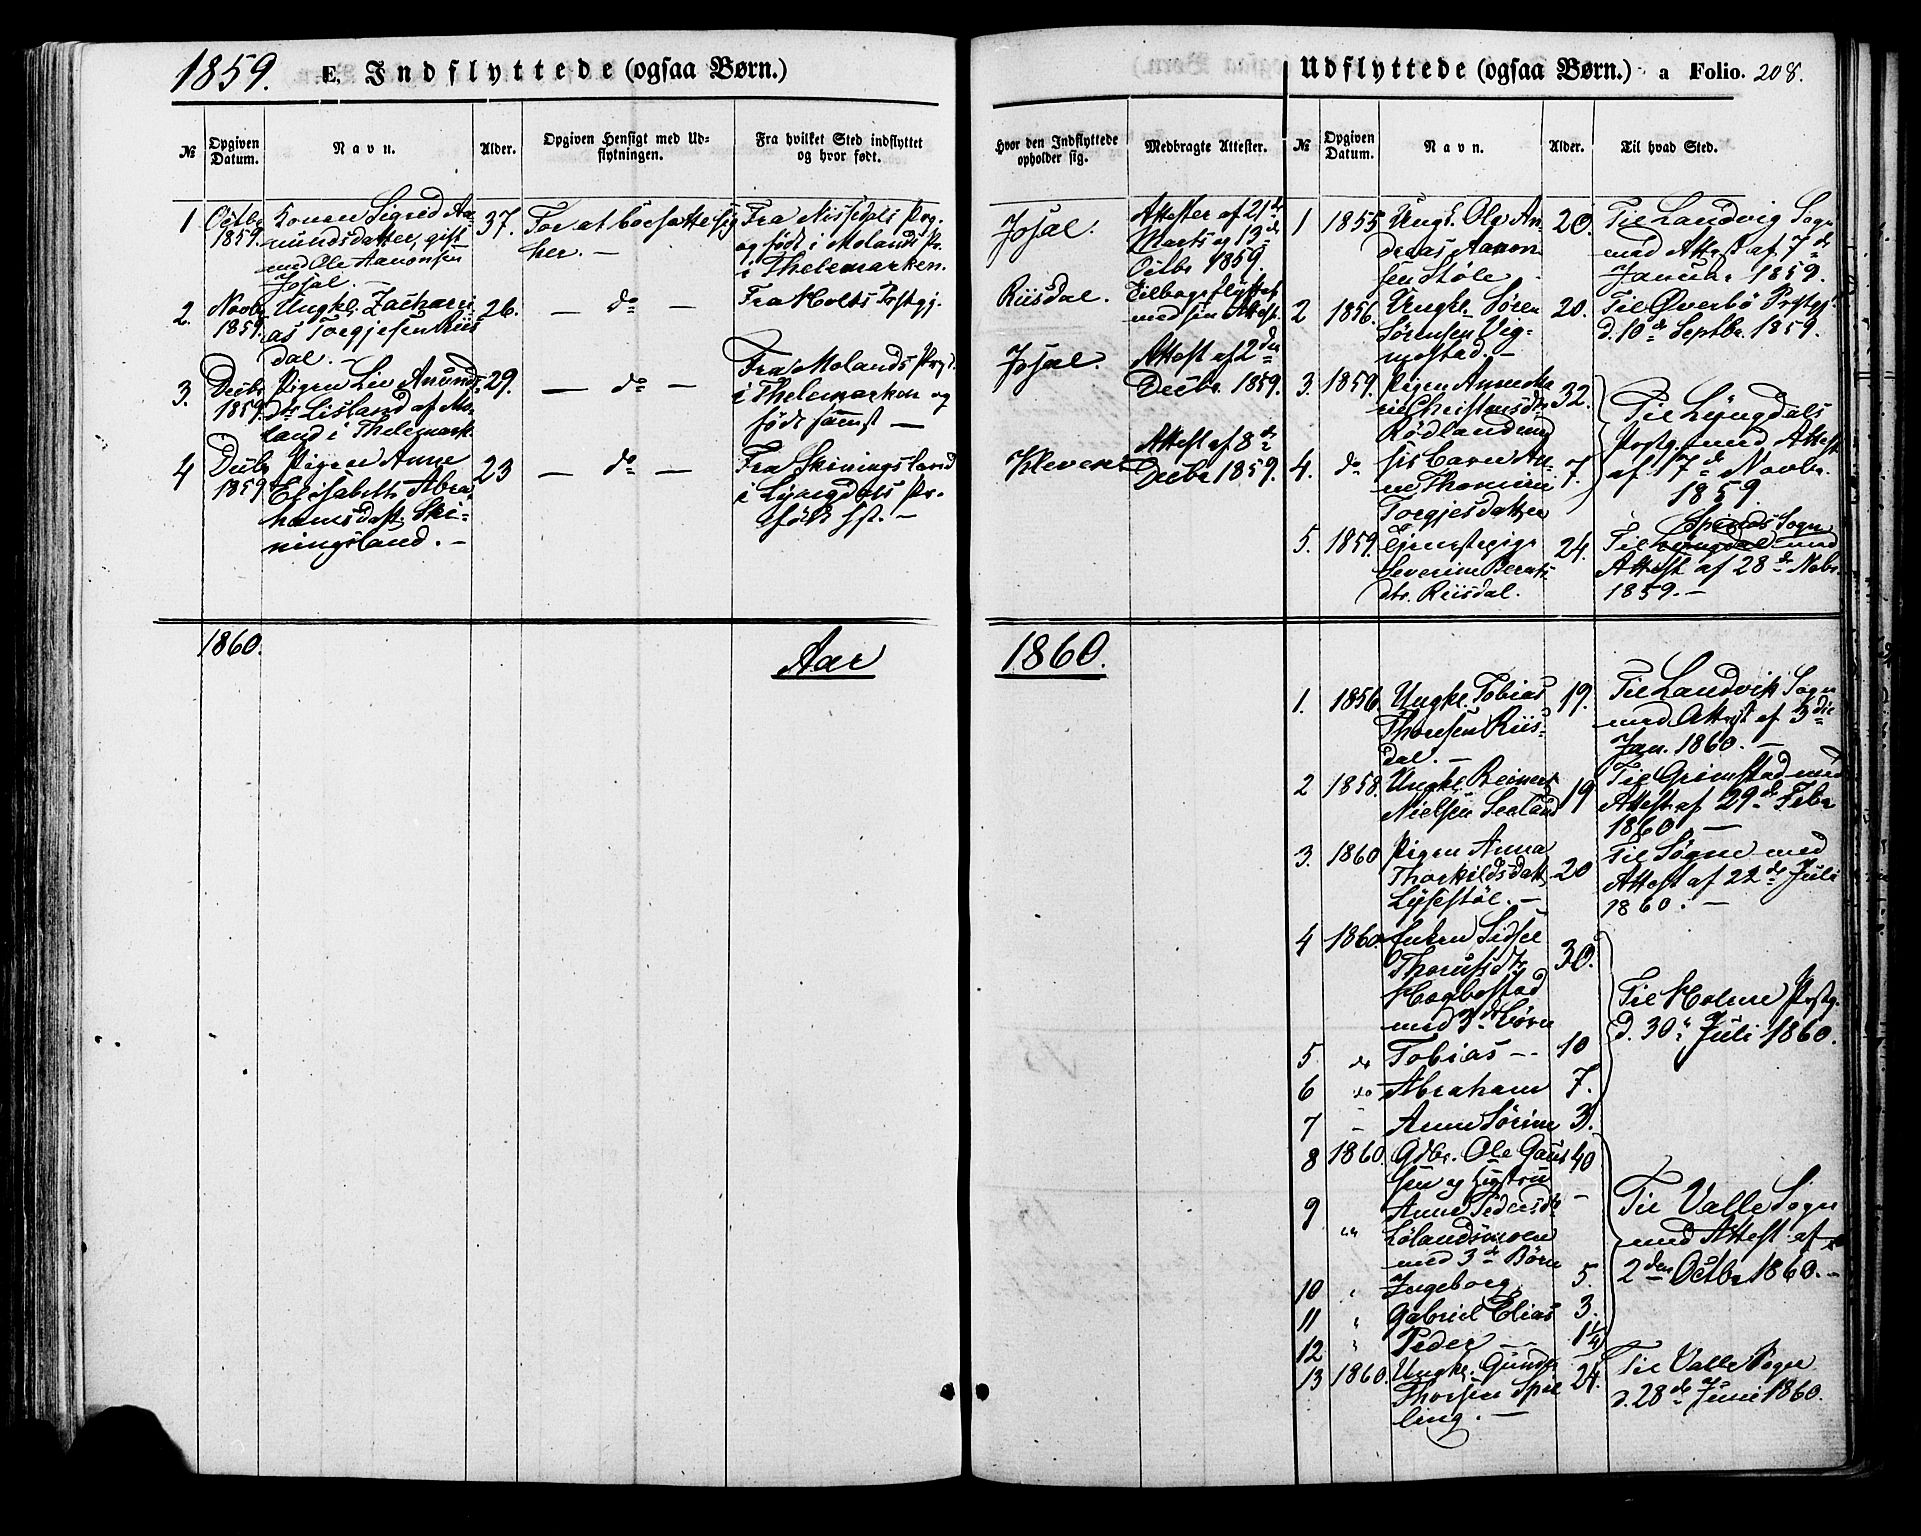 1859. E. Indflyttede (ogsaa Børn.)
№
Opgiven Datum.
Navn.
Alder.
Opgiven Hensigt med Ud-
flytningen.
Fra hvilket Sted indflyttet
og hvor født.
1 Octbr 1859. Konen Sigred Aa- 37. For at bosætte sig Fra Nissedals Prg.
mundsdatter, gift her. — og født i Molands Pr.
med Ole Aanonsen i Thelemarken.
Josal. —
2. Novbr 1859. Ungkl. Zachari- 26. — do — Fra Holts Prstgj.
as Torgjesen Riis
dal. —
3. Decbr 1859. Pigen Liv Anunds- 29. — do — Fra Molands Prgt.
dtr Lisland af Mo- i Thelemarken og
land i Thelemark. født samst —
4 Decbr 1859 Pigen Anne 23 — do — Fra Skiningsland
Elisabeth Abra- i Lyngdals Pr.
hamsdatt. Ski- født hst. —
ningsland. —
1860. Aar
Udflyttede (ogsaa Børn.) a Folio. 208.
Hvor den Indflyttede
opholder sig.
Medbragte Attester.
№
Opgiven Datum.
Navn.
Alder.
Til hvad Sted.
Josal.
Attester af 21de
Marts og 13de
Octbr 1859
Riisdal.
Tilbageflyttet
med sin Attest.
Josal.
Attest af 2den
Decbr. 1859.
Kleven
Attest af 8de
Decbr 1859.
1 1855 Ungk. Ole An- 20. Til Landvig Sogn
dreas Aanon- med Attest af 7de
sen Støle Januar 1859.
2 1856. Ungkl. Sören 20. Til Øverbö Prstgj.
Sörensen Vig- d. 10de Septbr. 1859.
mostad. —
3. 1859. Pigen Anne Ma- 32. Til Lyngdals
rie Christensdtr Prstg. med Attest
Rödland med af 17de Novbr.
4. do sit Barn An- 7. 1859.
ne Thomine
Torgjesdatter
5. 1859. Tjenestepige 24. Til Spinds Sogn med
Severine Berents- Attest af 28de Novbr
dtr. Riisdal. 1859. —
1860.
1. 1856. Ungkl. Tobias 19. Til Landvik Sogn
Thorsen Riis- med Attest af 3die
dal. — Jan. 1860. —
2 1858. Ungkl. Reinert 19 Til Grimstad med
Nielsen Sealand Attest af 29de Febr
1860 —
3. 1860 Pigen Anna 20 Til Søgne med
Thorkildsdatt. Attest af 22de Juli
Lysestöl. — 1860. —
4 1860. Enken Sidsel 30. Til Holme Prstg.
Hægbostad d. 30te Juli 1860.
med 3de Börn
5 do Tobias — 10
6 do Abraham 7.
7 — Anne Sörine 3.
8 1860. Gdbr. Ole Gaut- 40 Til Valle Sogn
sen og Hustru med Attest af
9 „ Anne Pedersdtr — 2den Octbr 1860. —
Lölandsmoen
med 3de Børn
10 „ Ingeborg 5.
11 „ Gabriel Elias 3.
12 „ Peder — 1¼
13 1860. Ungkl. Gunder 24. Til Valle Sogn
Thorsen Spil- d. 28de Juni 1860.
ling. —